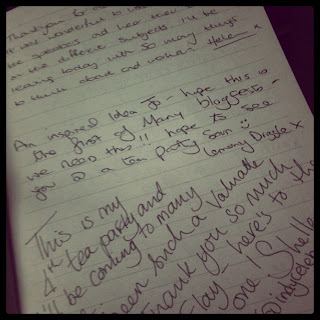 Thankyou for
It was wonderful to
the speakers and hear their
on the different subjects. I'll be
leaving today with so many things
to think about and workon. Helen x
An inspired Idea Jo - hope this is
the first of Many bloggers -
we need this!! hope to see
you @ a tea party soon
Lemony Drizzle X
This is my
4th tea party and
I'll be coming to many
been such a valuable
Thank you so much
here's to the
one Shelle